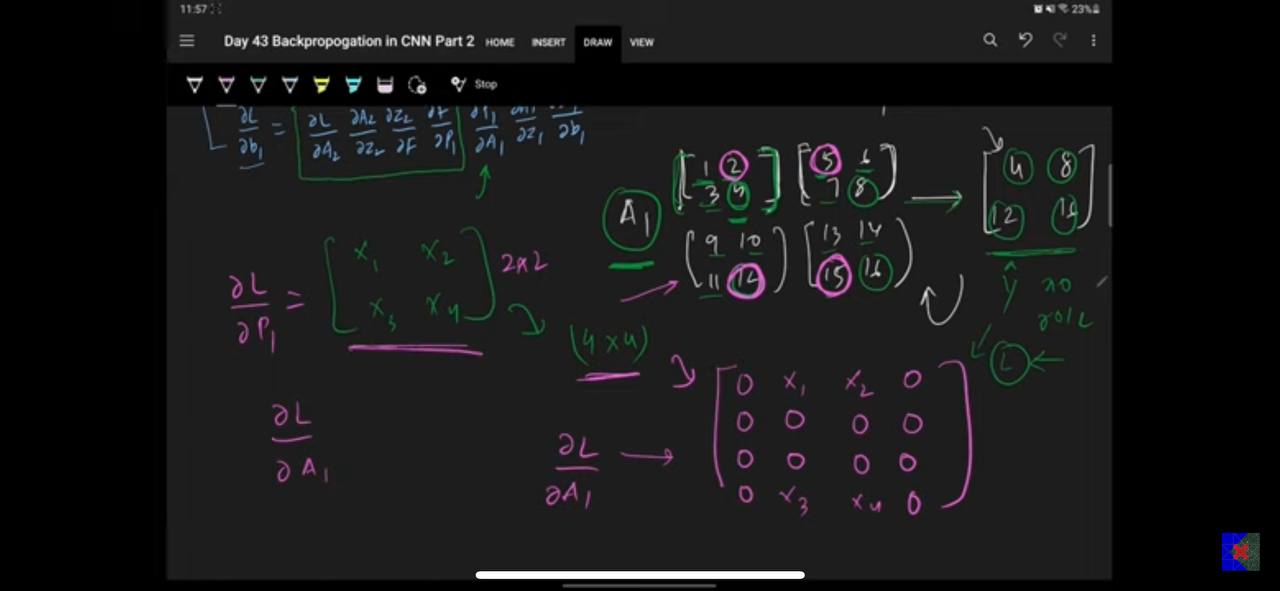 11:57
23%
Day 43 Backpropogation in CNN Part 2 HOME INSERT DRAW VIEW
Stop
∂L/∂b₁ = ∂L/∂A₂ ∂A₂/∂Z₂ ∂Z₂/∂F ∂F/∂P₁ ∂P₁/∂A₁ ∂A₁/∂Z₁ ∂Z₁/∂b₁
A₁
1 2
3 4
5 6
7 8
9 10
11 12
13 14
15 16
4 8
12 16
∂L/∂P₁ =
x₁ x₂
x₃ x₄
2x2
(4 x 4)
ŷ
L
∂L/∂A₁
∂L/∂A₁ →
0 x₁ x₂ 0
0 0 0 0
0 0 0 0
0 x₃ x₄ 0